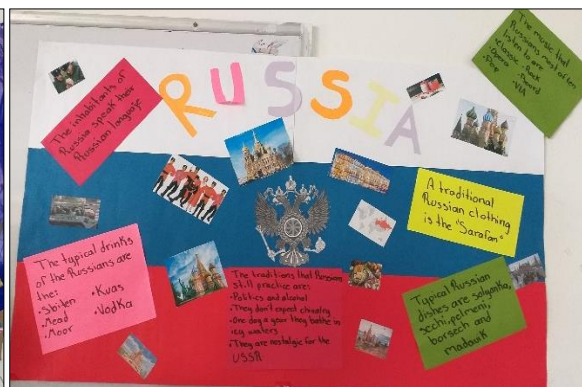 RUSSIA
The inhabitants of
Russia speak their
Russian language
The music that
Russians most often
listen to are
•classic •Rock
•Opera
•Pop •VIA
A traditional
Russian clothing
is the "Sarafan"
The typical drinks
of the Russians are
the:
•Sbiten •Kuas
•Mead •Vodka
•Moor
The traditions that Russians
still practice are:
•Politics and alcohol
•They don't expect chivalry
•One day a year they bathe in
icy waters
•They are nostalgic for the
USSR
Typical Russian
dishes are solyanka,
schi,pelmeni,
borsech and
madouik